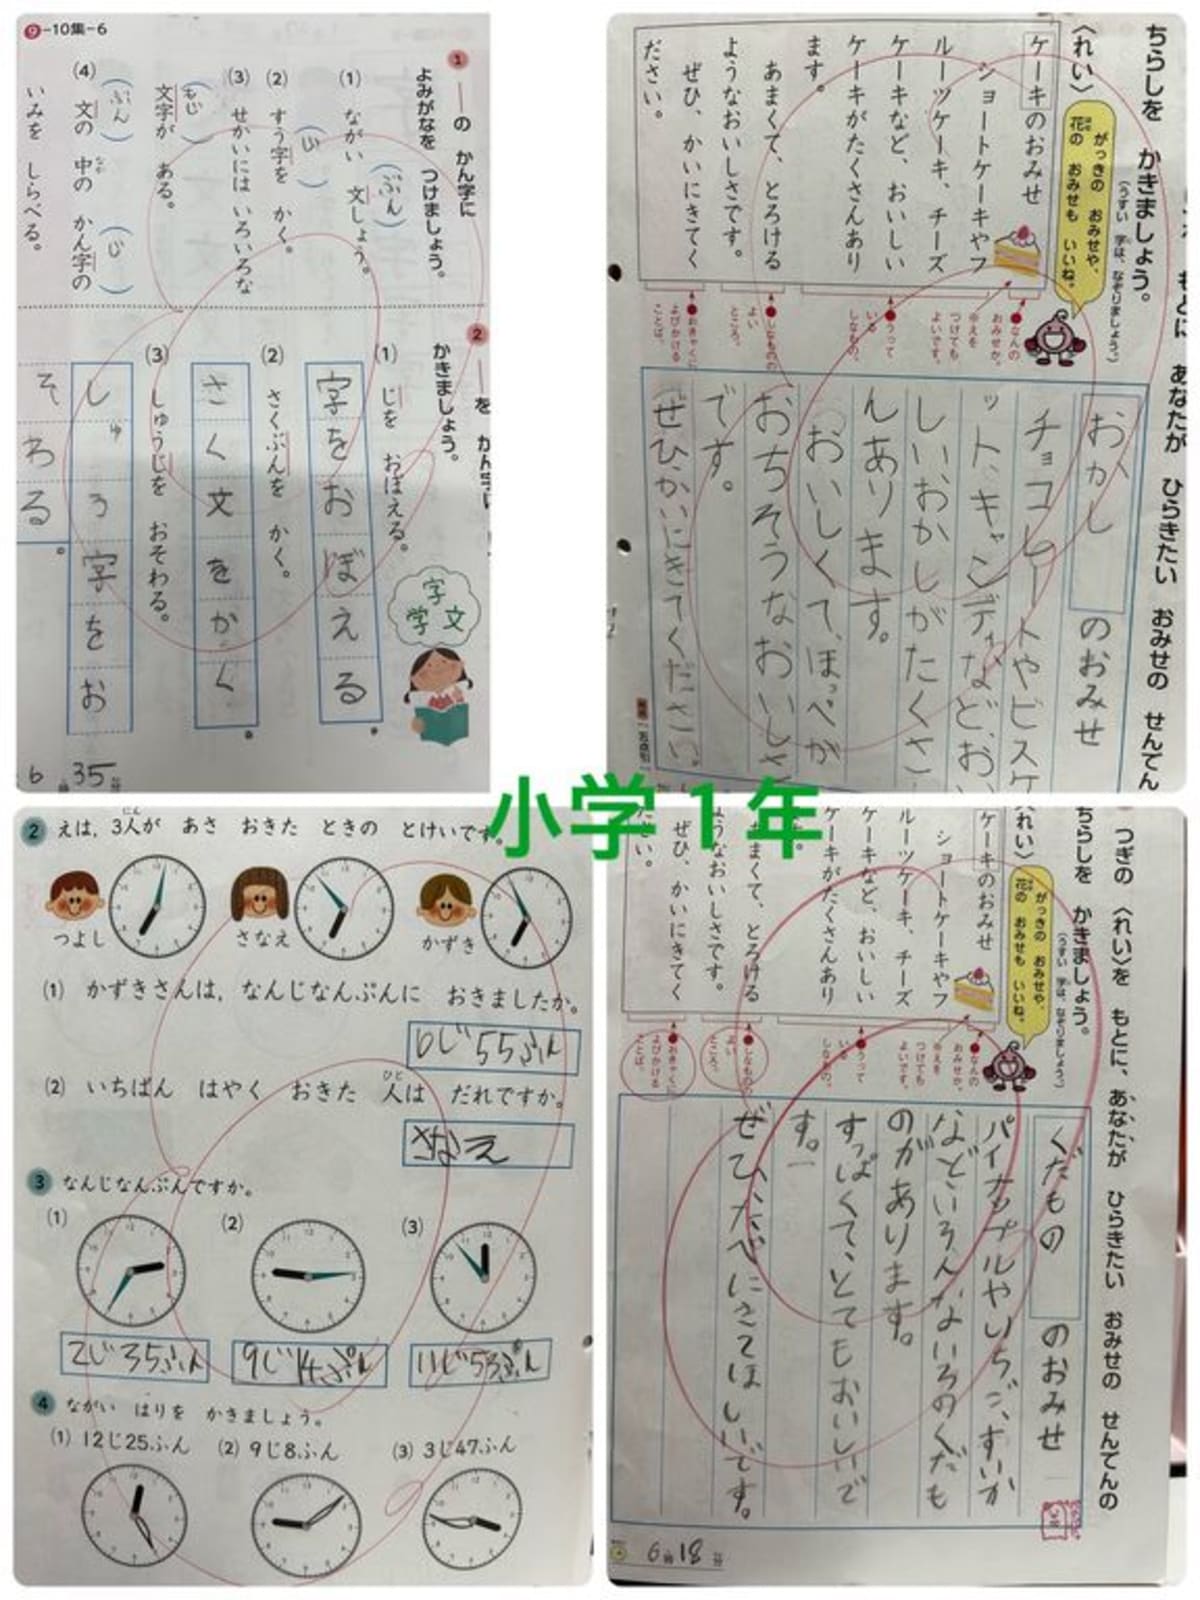 9-10集-6
1 ――の かん字に
よみがなを つけましょう。
(1) ながい 文しょう。
(ぶん)
(2) すう字を かく。
(じ)
(3) せかいには いろいろな
文字が ある。
(もじ)
(4) 文の 中の かん字の
(ぶん) なか (じ)
いみを しらべる。
2 ――を かん字に
かきましょう。
(1) じを おぼえる。
字をおぼえる。
(2) さくぶんを かく。
さく文をかく。
(3) しゅうじを おそわる。
しゅう字をお
そわる。
字
学文
6 35
ちらしを かきましょう。
(うすい 字は、なぞりましょう。)
〈れい〉
がっきの おみせや、
花の おみせも いいね。
ケーキのおみせ
ショートケーキやフ
ルーツケーキ、チーズ
ケーキなど、おいしい
ケーキがたくさんあり
ます。
あまくて、とろける
ようなおいしさです。
ぜひ、かいにきてく
ださい。
●なんの
おみせか。
※えを
つけても
よいです。
●うって
いる
しなもの。
●しなものの
よい
ところ。
●おきゃくに
よびかける
ことば。
おかし のおみせ
チョコレートやビスケ
ット、キャンディなど、おい
しいおかしがたくさ
んあります。
おいしくて、ほっぺが
おちそうなおいしさ
です。
ぜひ、かいにきてください。
小学1年
2 えは、3人が あさ おきた ときの とけいです。
つよし さなえ かずき
(1) かずきさんは、なんじなんぷんに おきましたか。
6じ55ふん
(2) いちばん はやく おきた 人は だれですか。
さなえ
3 なんじなんぷんですか。
(1) (2) (3)
2じ35ふん 9じ14ぷん 11じ53ぷん
4 ながい はりを かきましょう。
(1) 12じ25ふん (2) 9じ8ふん (3) 3じ47ふん
つぎの 〈れい〉を もとに、あなたが ひらきたい おみせの せんでんの
ちらしを かきましょう。
(うすい 字は、なぞりましょう。)
〈れい〉
がっきの おみせや、
花の おみせも いいね。
ケーキのおみせ
ショートケーキやフ
ルーツケーキ、チーズ
ケーキなど、おいしい
ケーキがたくさんあり
ぜひ、かいにきてく
くだもの のおみせ
パイナップルやいちご、すいか
などいろんないろのくだも
のがあります。
すっぱくて、とてもおいしいで
す。
ぜひ、たべにきてほしいです。
6時18分